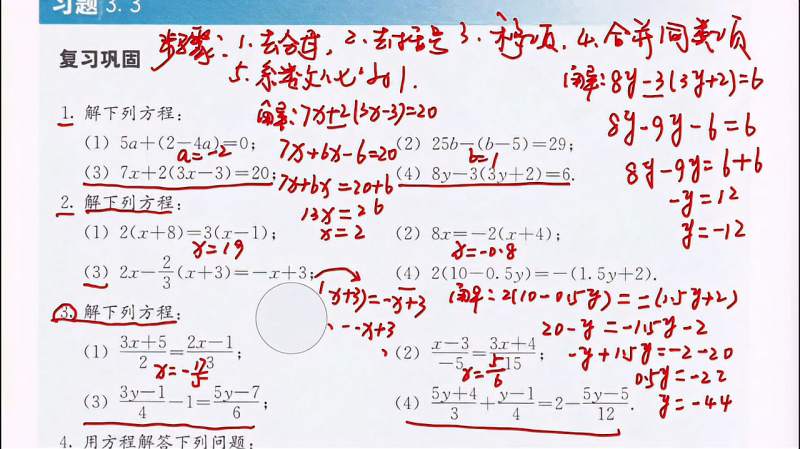 习题 3.3
复习巩固
步骤: 1. 去分母, 2. 去括号 3. 移项, 4. 合并同类项
5. 系数化“1”为1.
1. 解下列方程:
(1) 5a+(2-4a)=0;
a=-2
(2) 25b-(b-5)=29;
b=1
(3) 7x+2(3x-3)=20;
(4) 8y-3(3y+2)=6.
解: 7x+2(3x-3)=20
7x+6x-6=20
7x+6x=20+6
13x=26
x=2
解: 8y-3(3y+2)=6
8y-9y-6=6
8y-9y=6+6
-y=12
y=-12
2. 解下列方程:
(1) 2(x+8)=3(x-1);
x=19
(2) 8x=-2(x+4);
x=-0.8
(3) 2x-2/3(x+3)=-x+3;
(4) 2(10-0.5y)=-(1.5y+2).
(x+3)=-x+3
-x+3
解: 2(10-0.5y)=-(1.5y+2)
20-y=-1.5y-2
-y+1.5y=-2-20
0.5y=-22
y=-44
3. 解下列方程:
(1) (3x+5)/2=(2x-1)/3;
x=-17/5
(2) (x-3)/-5=(3x+4)/15;
x=5/6
(3) (3y-1)/4-1=(5y-7)/6;
(4) (5y+4)/3+(y-1)/4=2-(5y-5)/12.
4. 用方程解答下列问题: